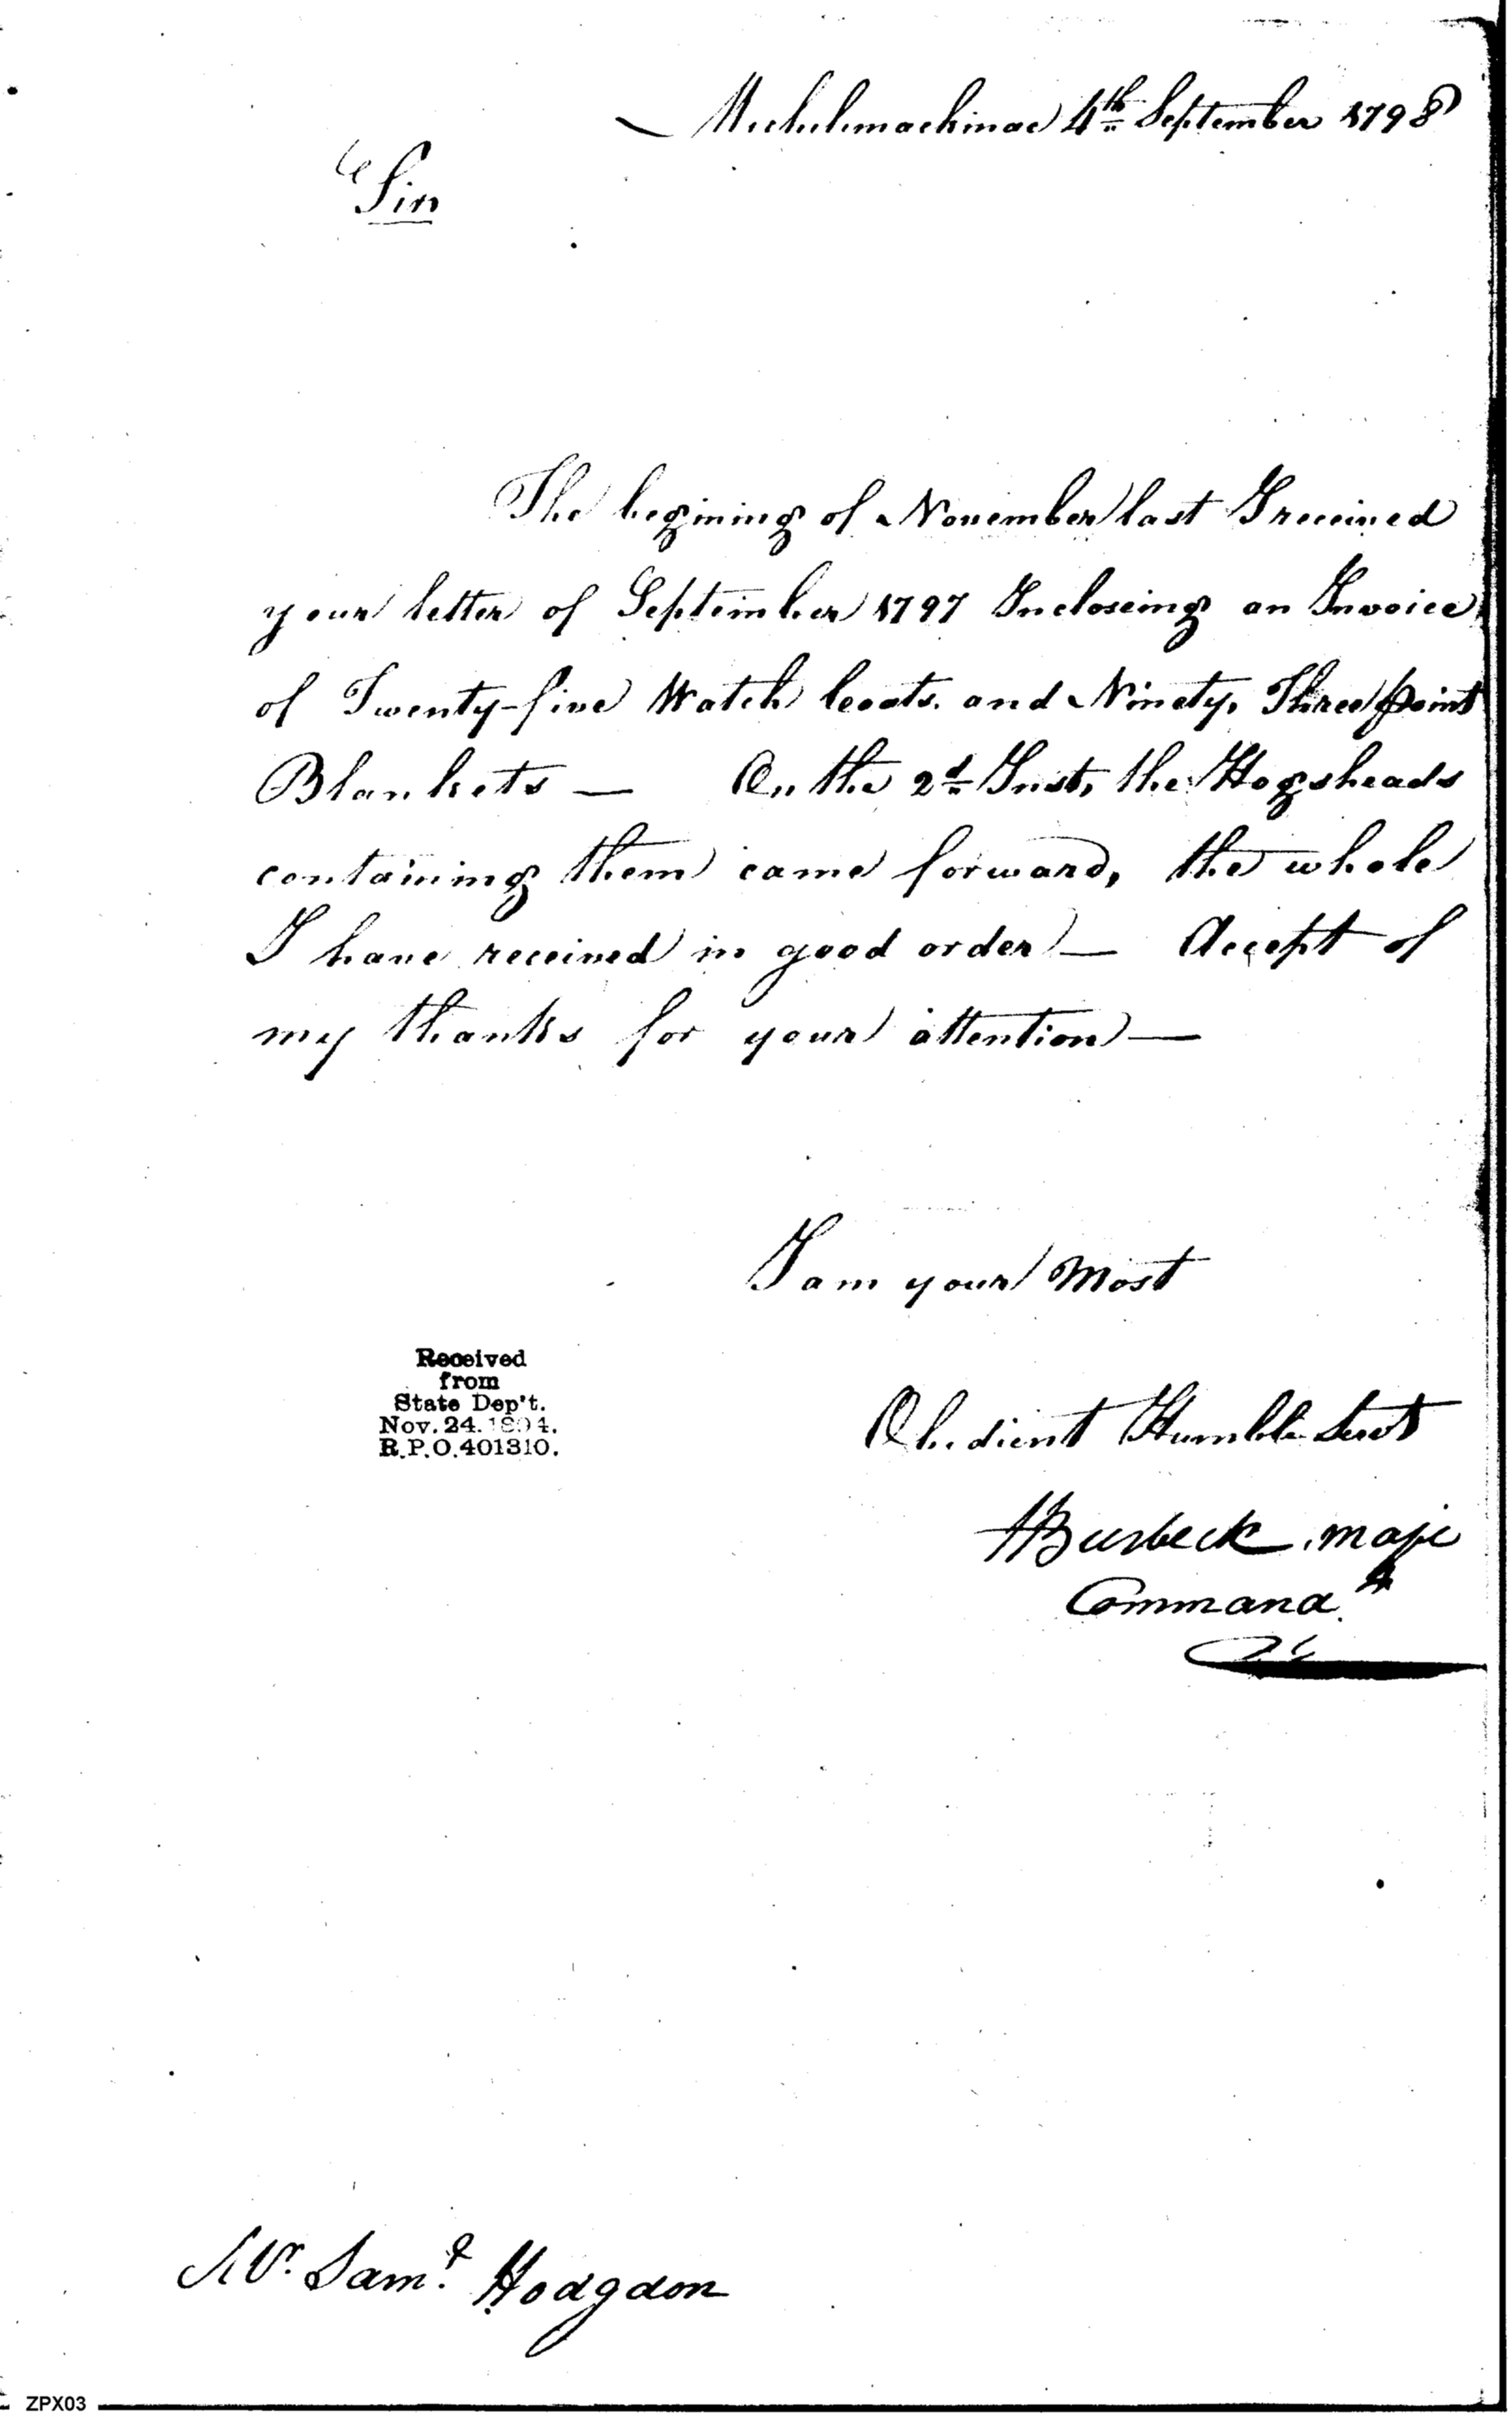 Michilimackinac 4th September 1798
Sir
The begining of November last I received
your letter of September 1797 Incloseing an Invoice
of Twenty-five Watch Coats. and Ninety, Three point
Blankets — On the 2d Inst, the Hogsheads
containing them came forward, the whole
I have received in good order — Accept of
my thanks for your attention —
I am your Most
Obedient Humble Servt
HBurbeck. majr
Commandt
Received
from
State Dep't.
Nov. 24. 1894.
R.P.O. 401310.
Mr. Saml Hodgdon
ZPX03